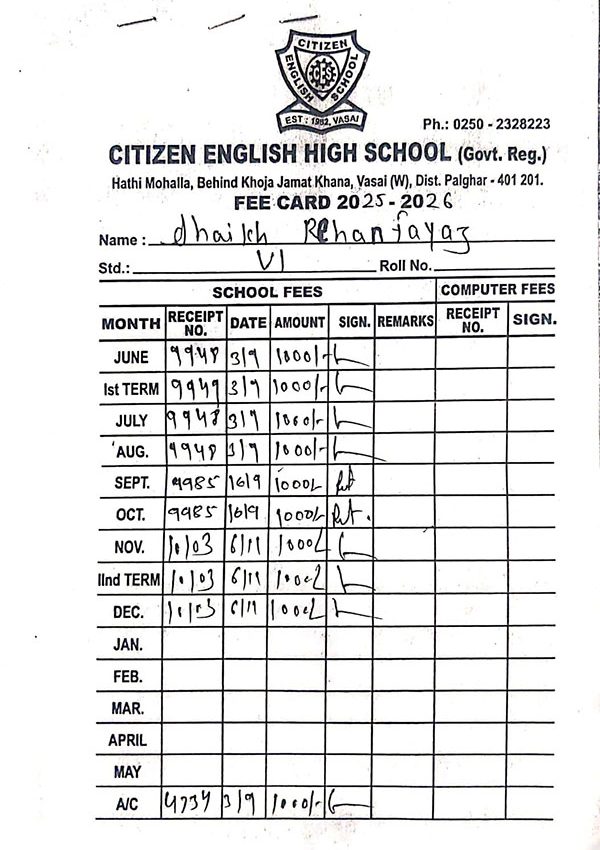 CITIZEN
ENGLISH
SCHOOL
CES
EST : 1982, VASAI
Ph.: 0250 - 2328223
CITIZEN ENGLISH HIGH SCHOOL (Govt. Reg.)
Hathi Mohalla, Behind Khoja Jamat Khana, Vasai (W), Dist. Palghar - 401 201.
FEE CARD 2025 - 2026
Name : Shaikh Rehan fayaz
Std.: VI Roll No.
SCHOOL FEES COMPUTER FEES
MONTH RECEIPT NO. DATE AMOUNT SIGN. REMARKS RECEIPT NO. SIGN.
JUNE 9948 3/9 1000/-
Ist TERM 9949 3/9 1000/-
JULY 9948 3/9 1000/-
AUG. 9948 3/9 1000/-
SEPT. 9985 16/9 1000/-
OCT. 9985 16/9 1000/-
NOV. 10103 6/11 1000/-
IInd TERM 10103 6/11 1000/-
DEC. 10103 6/11 1000/-
JAN.
FEB.
MAR.
APRIL
MAY
A/C 4734 3/9 1000/-